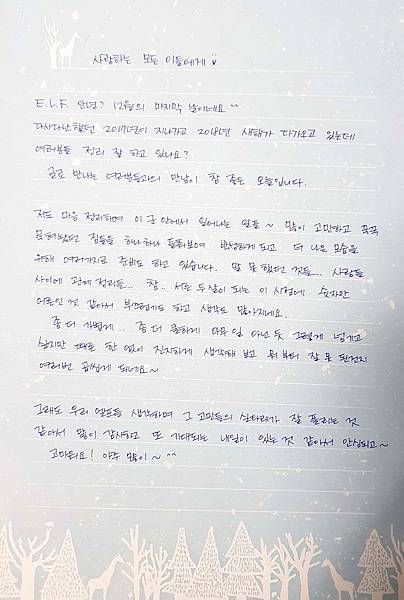 사랑하는 모든 이들에게
E.L.F 안녕? 12월의 마지막 날이네요 ^^
다사다난했던 2017년이 지나가고 2018년 새해가 다가오고 있는데
여러분들 정리 잘 하고 있나요?
글로 만나는 여러분들과의 만남이 참 좋은 오늘입니다.
저도 마음 정리하며 이 곳 안에서 일어나는 일들 ~ 많이 고민하고 꾹꾹
묵혀놨던 짐들을 하나 하나 들춰보며 반성하게 되고 더 나은 모습을
위해 여러가지로 준비도 하고 있습니다. 말 못 했던 것들... 사람들
사이에 관계 정리들... 참.. 서른 두살이 되는 이 시점에 숫자만
어른인 것 같아서 부끄럽게도 하고 생각도 많아지네요.
좀 더 가볍게.. 좀 더 쿨하게 아무 일 아닌 듯 그렇게 넘기고
싶지만 때론 한 없이 진지하게 생각해 보고 뭐부터 잘 못 된건지
여러번 곱씹게 되네요~
그래도 우리 엘프들 생각하며 그 고민들의 실타래가 잘 풀리는 것
같아서 많이 감사하고 또 기대되는 내일이 있는 것 같아서 안심되고~
고마워요! 아주 많이 ~ ^^